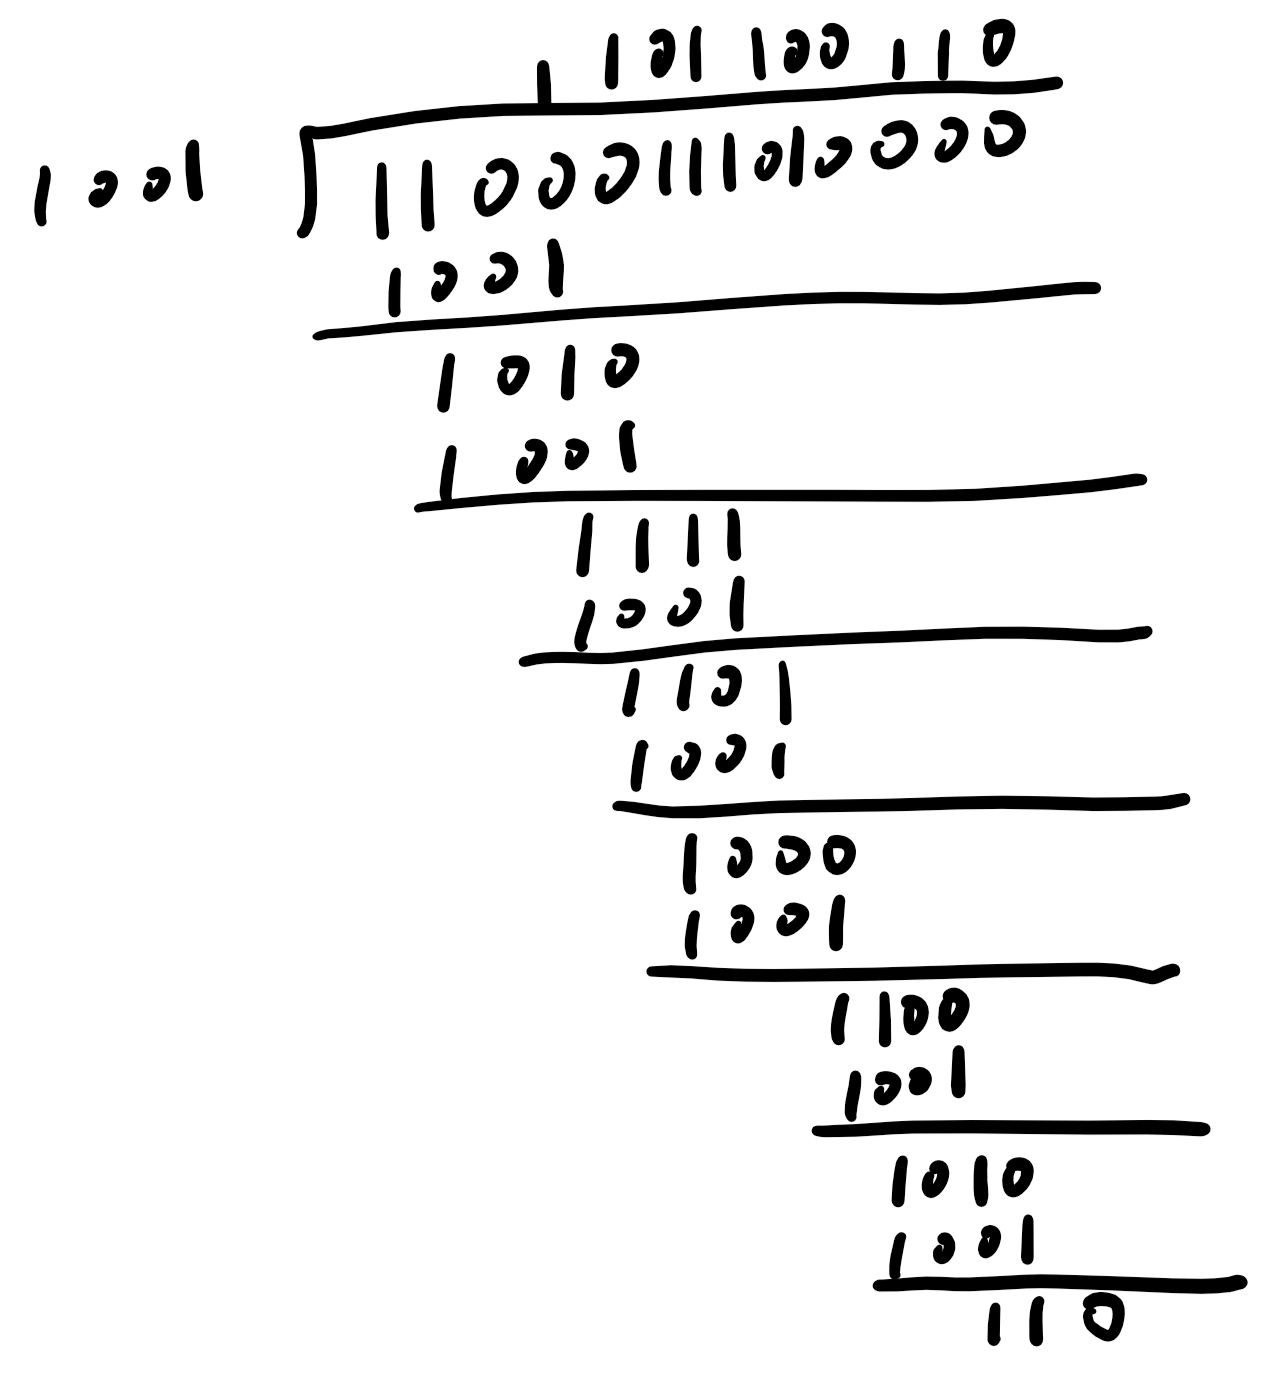 1 101 100 110
1001 11000111010000
1001
1010
1001
1111
1001
1101
1001
1000
1001
1100
1001
1010
1001
110